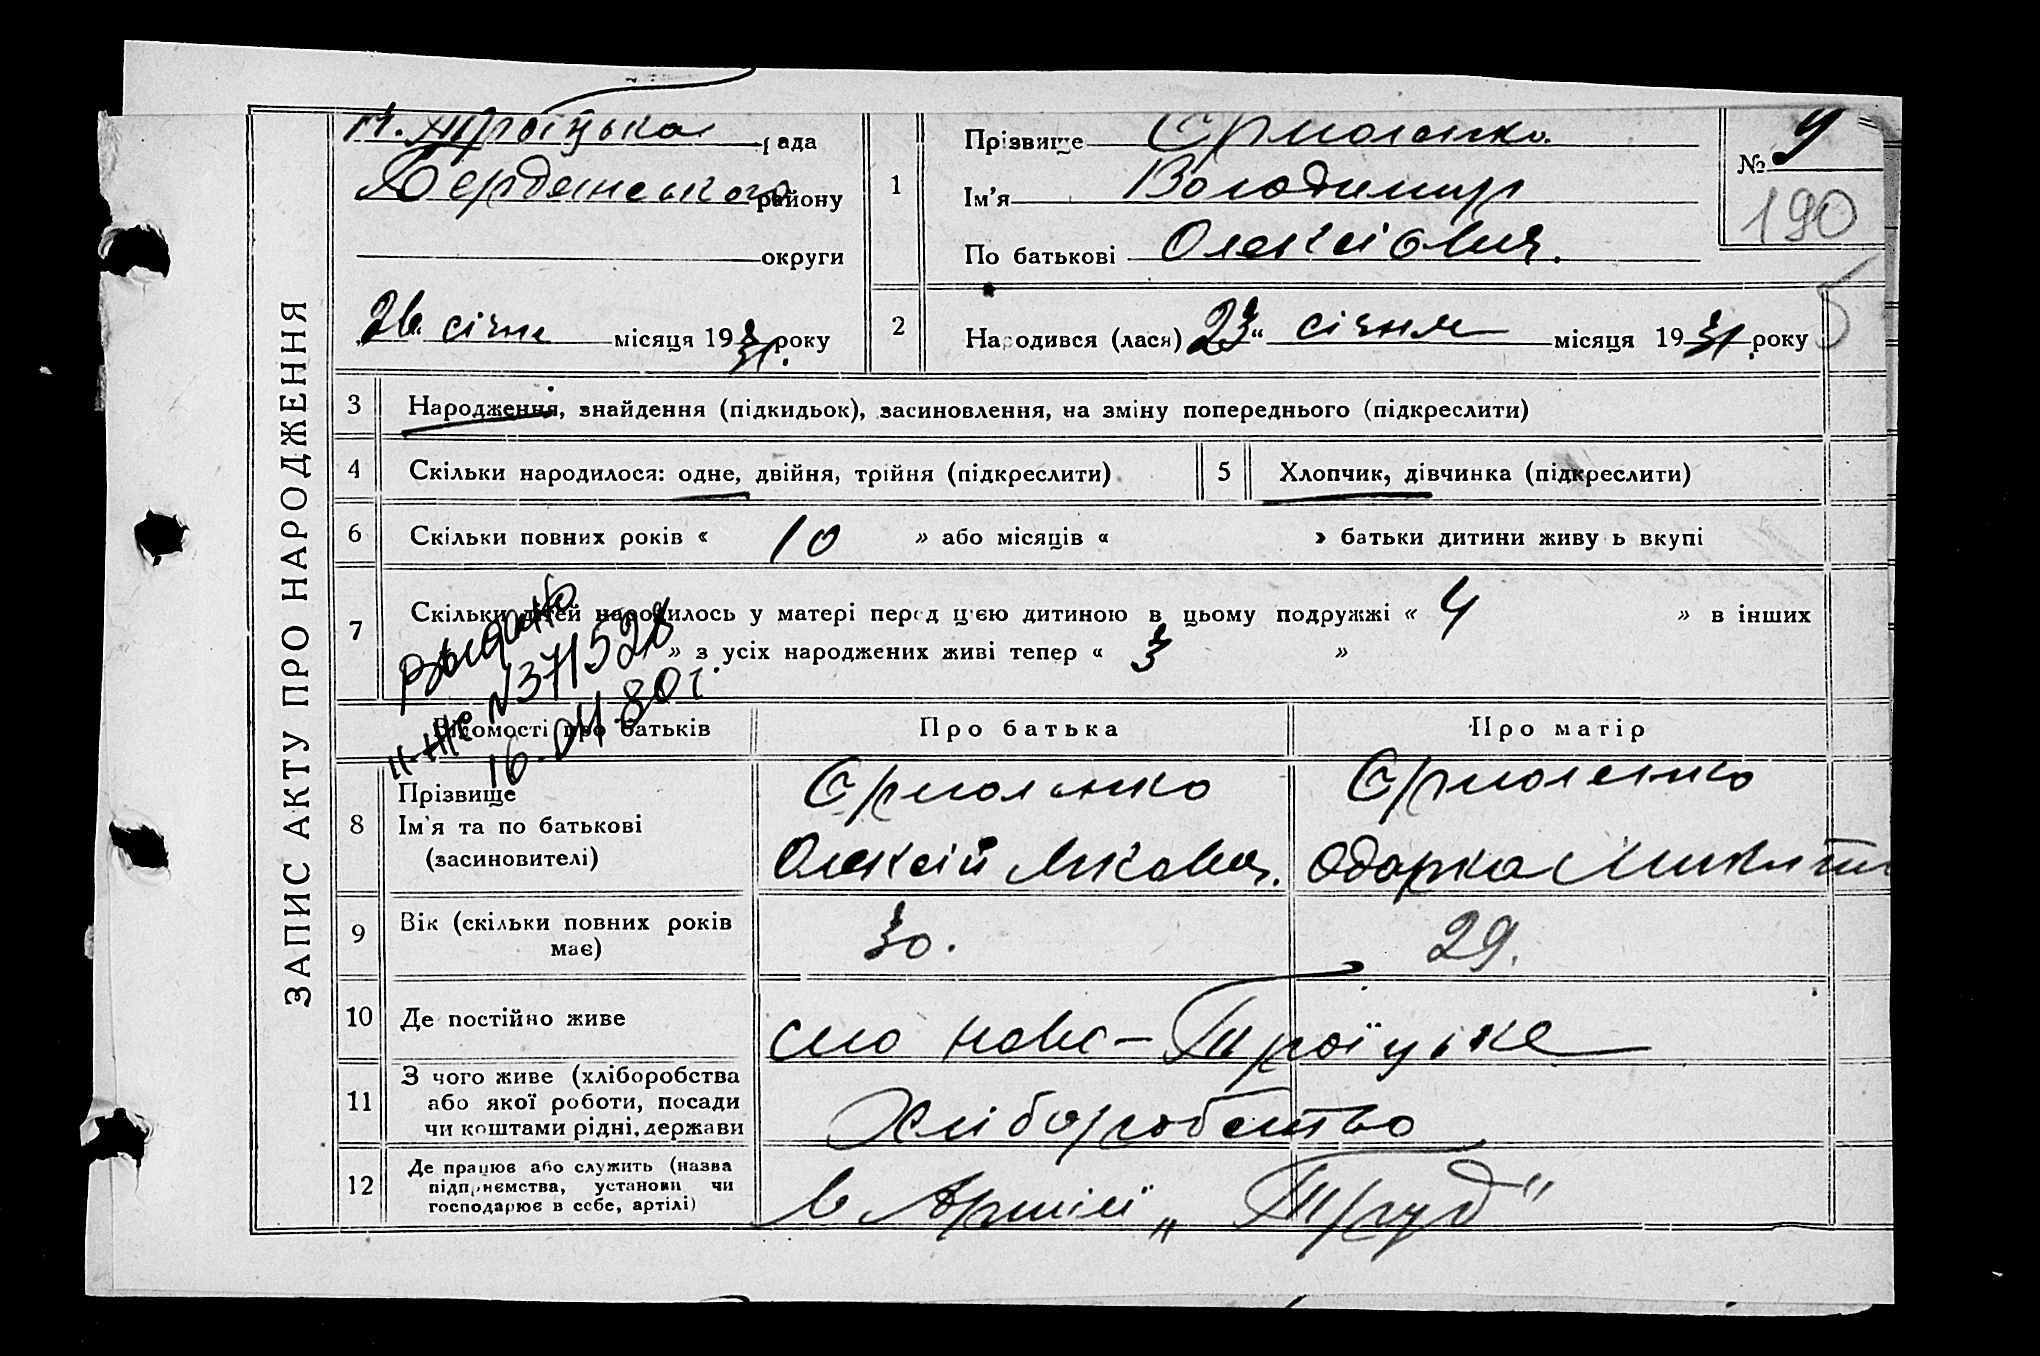 ЗАПИС АКТУ ПРО НАРОДЖЕННЯ
Н. Троїцька рада
Бердянського району
округи
26 січня місяця 1931 року
1
Прізвище Єрмоленко
Ім'я Володимир
По батькові Олексіович.
№ 9
190
2 Народився (лася) 23 “ січня місяця 1931 року
3 Народження, знайдення (підкидьок), засиновлення, на зміну попереднього (підкреслити)
4 Скільки народилося: одне, двійня, трійня (підкреслити)
5 Хлопчик, дівчинка (підкреслити)
6 Скільки повних років « 10 » або місяців « » батьки дитини живу ь вкупі
7 Скільки дітей народилось у матері перед цією дитиною в цьому подружжі « 4 » в інших
» з усіх народжених живі тепер « 3 »
Выдано
№371528
16.04.80 г.
Відомості про батьків
Про батька
Про матір
8
Прізвище
Ім'я та по батькові
(засиновителі)
Єрмоленко
Олексій
Єрмоленко
Одарка
9 Вік (скільки повних років
має)
30.
29.
10 Де постійно живе
село Ново-Троїцьке
11 З чого живе (хліборобства
або якої роботи, посади
чи коштами рідні, держави
Хліборобство
12 Де працює або служить (назва
підприємства, установи чи
господарює в себе, артілі)
в Артілі „Труд“